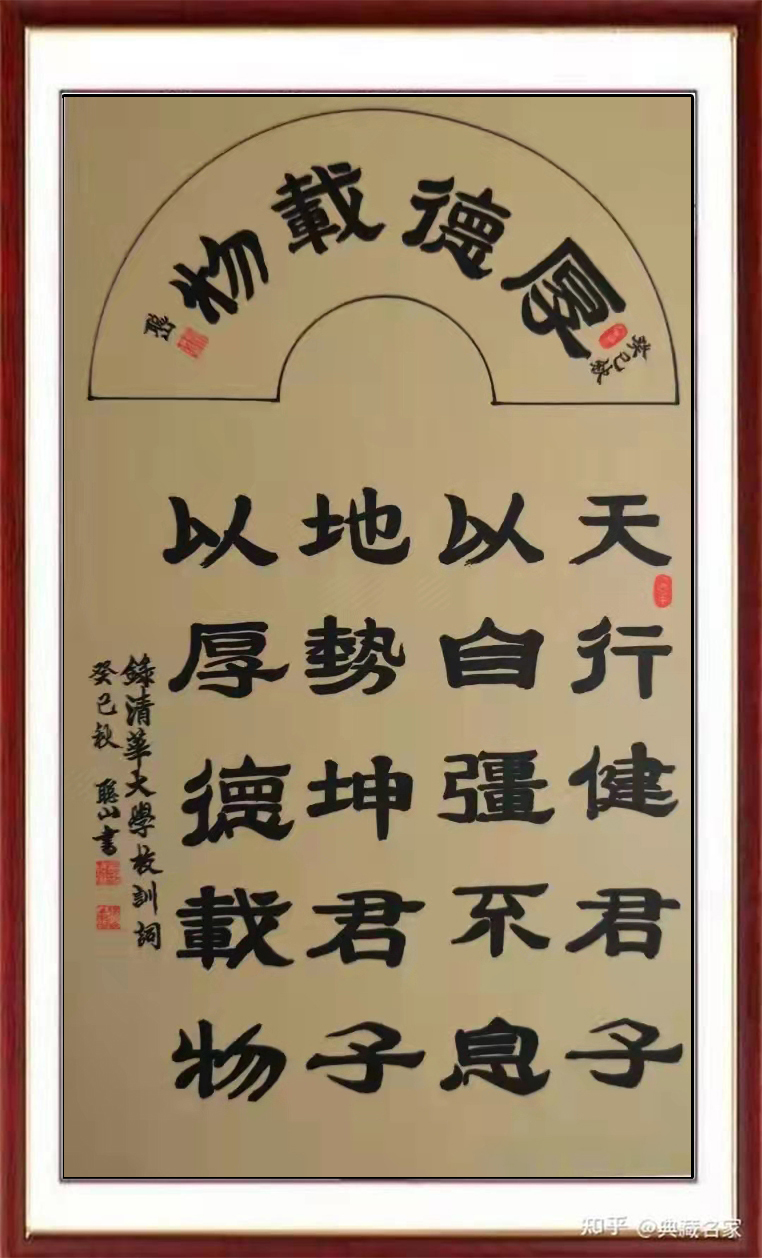 癸巳秋
厚德載物
天行健君子
以自彊不息
地勢坤君子
以厚德載物
錄清華大學校訓詞
癸巳秋 山書
知乎 @典藏名家